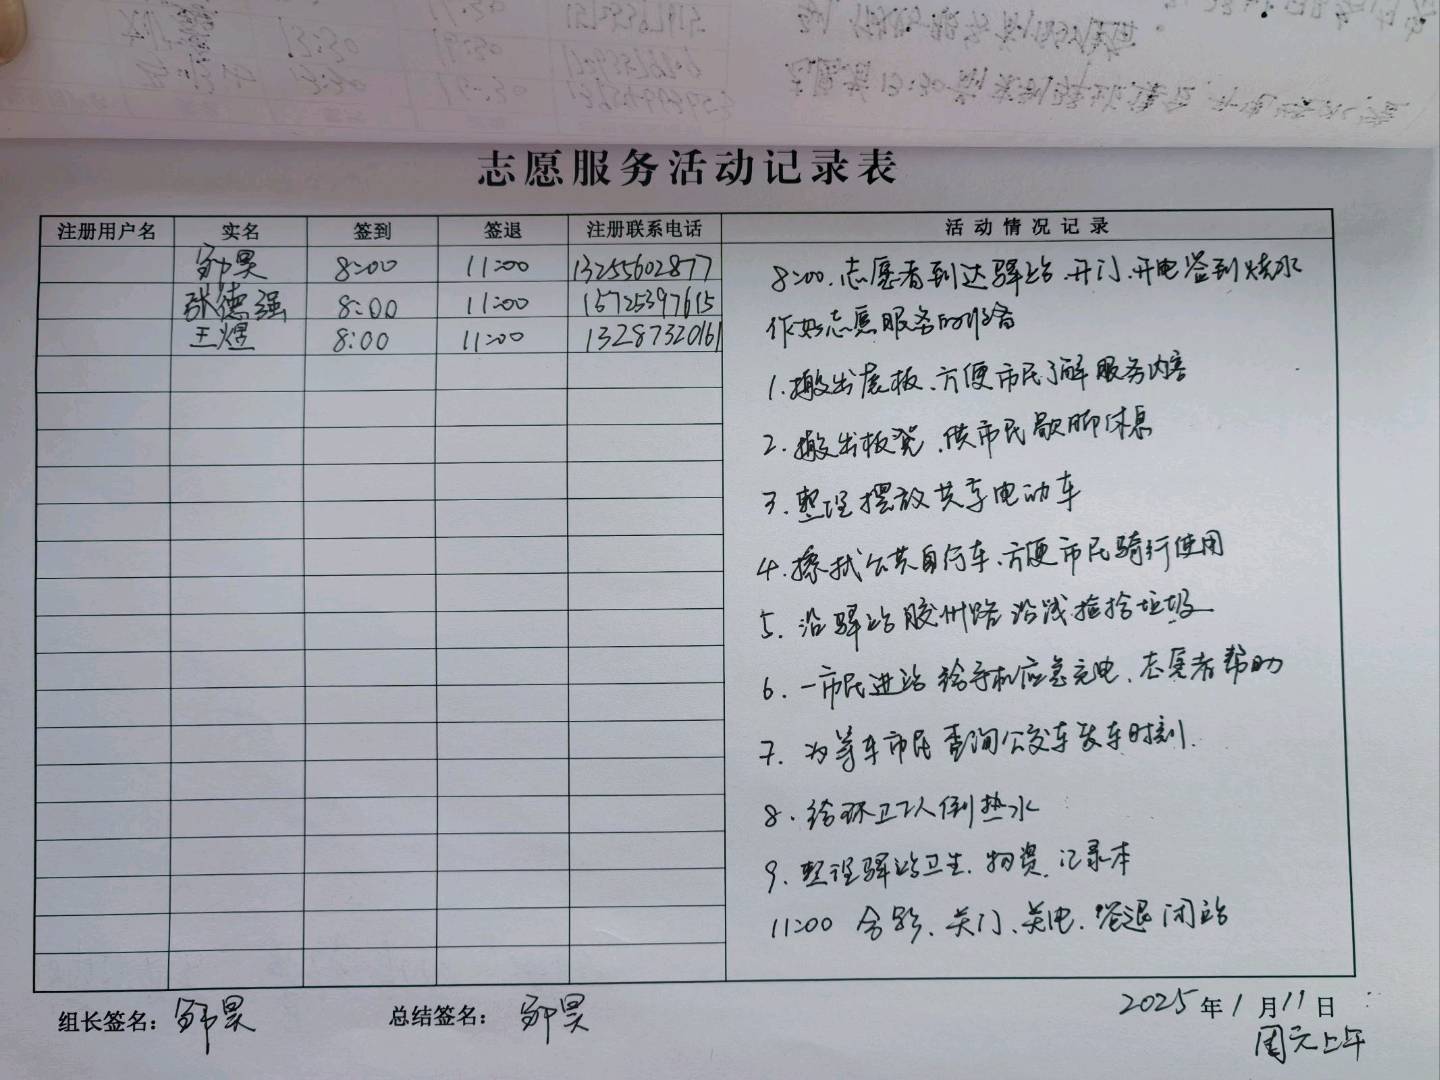 志愿服务活动记录表
注册用户名 实名 签到 签退 注册联系电话 活动情况记录
邹昊 8:00 11:00 13255602877
张德强 8:00 11:00 15725397615
王煜 8:00 11:00 13287320161
8:00.志愿者到达驿站、开门、开电签到烧水
作好志愿服务的准备
1.搬出展板、方便市民了解服务内容
2.搬出板凳、供市民歇脚休息
3.整理摆放共享电动车
4.擦拭公共自行车、方便市民骑行使用
5.沿驿站胶州路沿线捡拾垃圾
6.一市民进站给手机应急充电、志愿者帮助
7.为等车市民查询公交车发车时刻.
8.给环卫工人倒热水
9.整理驿站卫生、物资、记录本
11:00 合影、关门、关电、签退闭站
组长签名: 邹昊 总结签名: 邹昊 2025年1月11日
周六上午